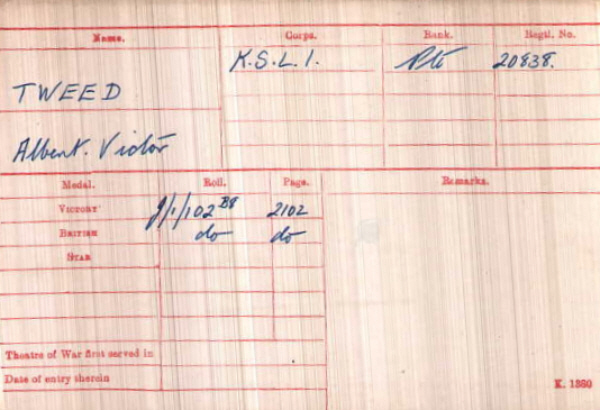 Name. Corps. Rank. Regtl. No.
K.S.L.I. Pte 20838.
TWEED
Albert. Victor
Medal. Roll. Page. Remarks.
VICTORY J/1/102 B8 2102
BRITISH do do
STAR
Theatre of War first served in
Date of entry therein
K. 1380